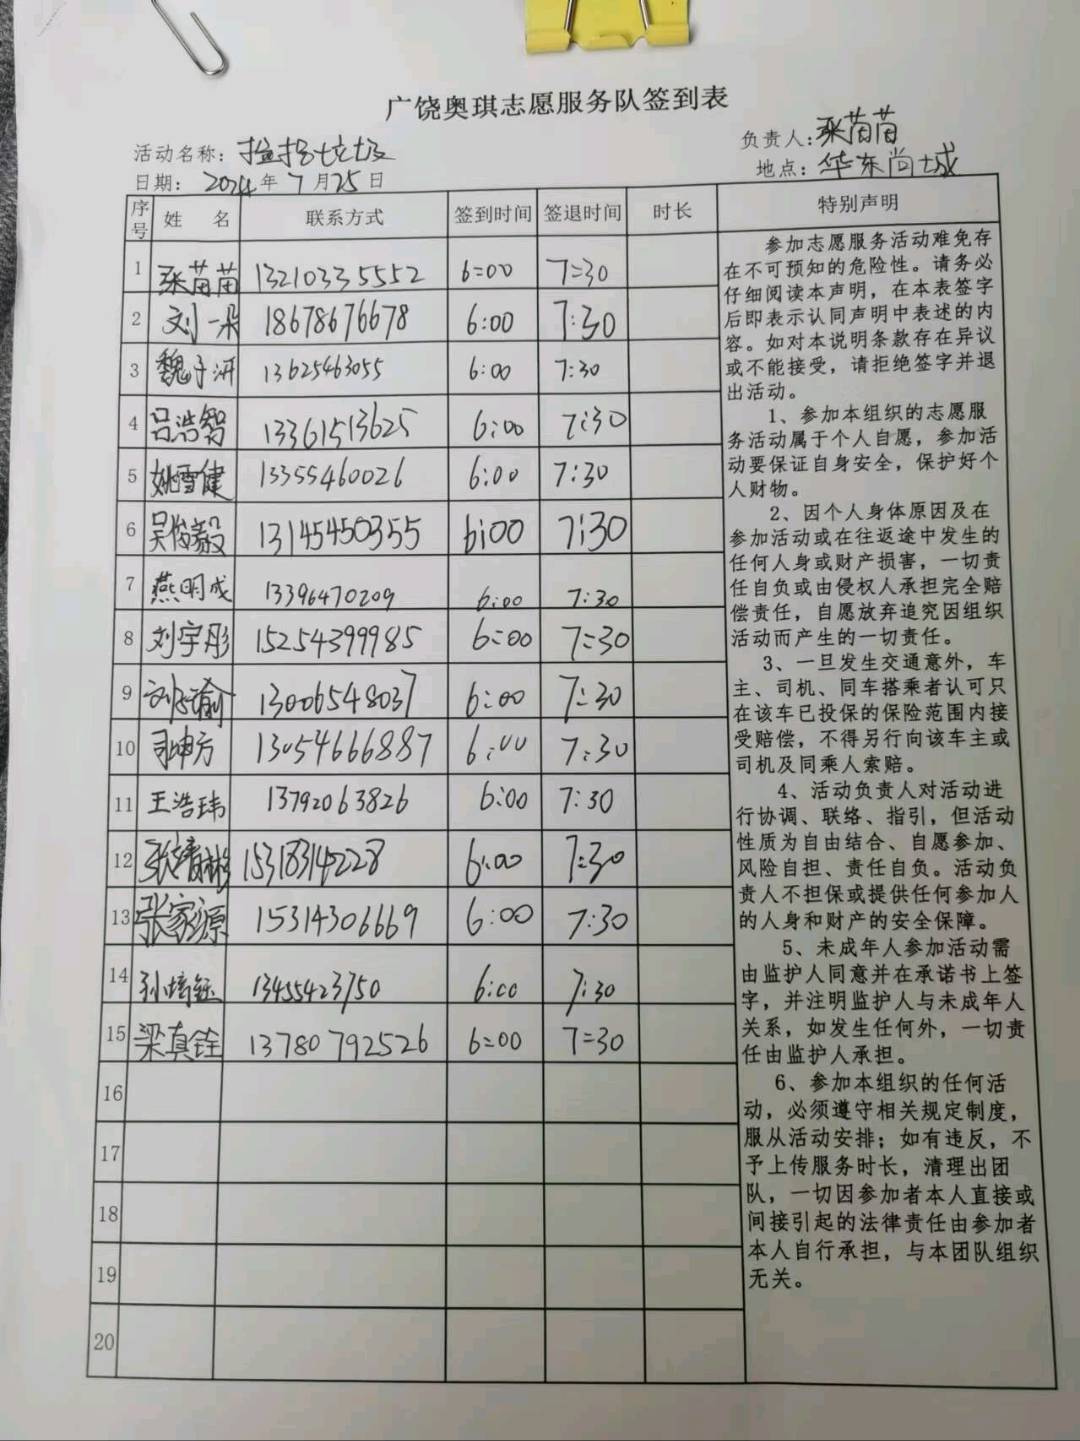 广饶奥琪志愿服务队签到表
活动名称：捡拾垃圾 负责人：张苗苗
日期：2024年7月25日 地点：华东尚城
序号 姓 名 联系方式 签到时间 签退时间 时长 特别声明
1 张苗苗 13210335552 6:00 7:30
2 刘一朵 18678676678 6:00 7:30
3 魏子涵 13625463055 6:00 7:30
4 吕浩智 13361513625 6:00 7:30
5 姚雪健 13355460026 6:00 7:30
6 吴俊毅 13145450355 6:00 7:30
7 燕明成 13396470209 6:00 7:30
8 刘宇彤 15254399985 6:00 7:30
9 13006548037 6:00 7:30
10 13054666887 6:00 7:30
11 王浩玮 13792063826 6:00 7:30
12 15318314228 6:00 7:30
13 张家源 15314306669 6:00 7:30
14 13455423750 6:00 7:30
15 梁真铨 13780792526 6:00 7:30
16
17
18
19
20
参加志愿服务活动难免存
在不可预知的危险性。请务必
仔细阅读本声明，在本表签字
后即表示认同声明中表述的内
容。如对本说明条款存在异议
或不能接受，请拒绝签字并退
出活动。
1、参加本组织的志愿服
务活动属于个人自愿，参加活
动要保证自身安全，保护好个
人财物。
2、因个人身体原因及在
参加活动或在往返途中发生的
任何人身或财产损害，一切责
任自负或由侵权人承担完全赔
偿责任，自愿放弃追究因组织
活动而产生的一切责任。
3、一旦发生交通意外，车
主、司机、同车搭乘者认可只
在该车已投保的保险范围内接
受赔偿，不得另行向该车主或
司机及同乘人索赔。
4、活动负责人对活动进
行协调、联络、指引，但活动
性质为自由结合、自愿参加、
风险自担、责任自负。活动负
责人不担保或提供任何参加人
的人身和财产的安全保障。
5、未成年人参加活动需
由监护人同意并在承诺书上签
字，并注明监护人与未成年人
关系，如发生任何外，一切责
任由监护人承担。
6、参加本组织的任何活
动，必须遵守相关规定制度，
服从活动安排；如有违反，不
予上传服务时长，清理出团
队，一切因参加者本人直接或
间接引起的法律责任由参加者
本人自行承担，与本团队组织
无关。